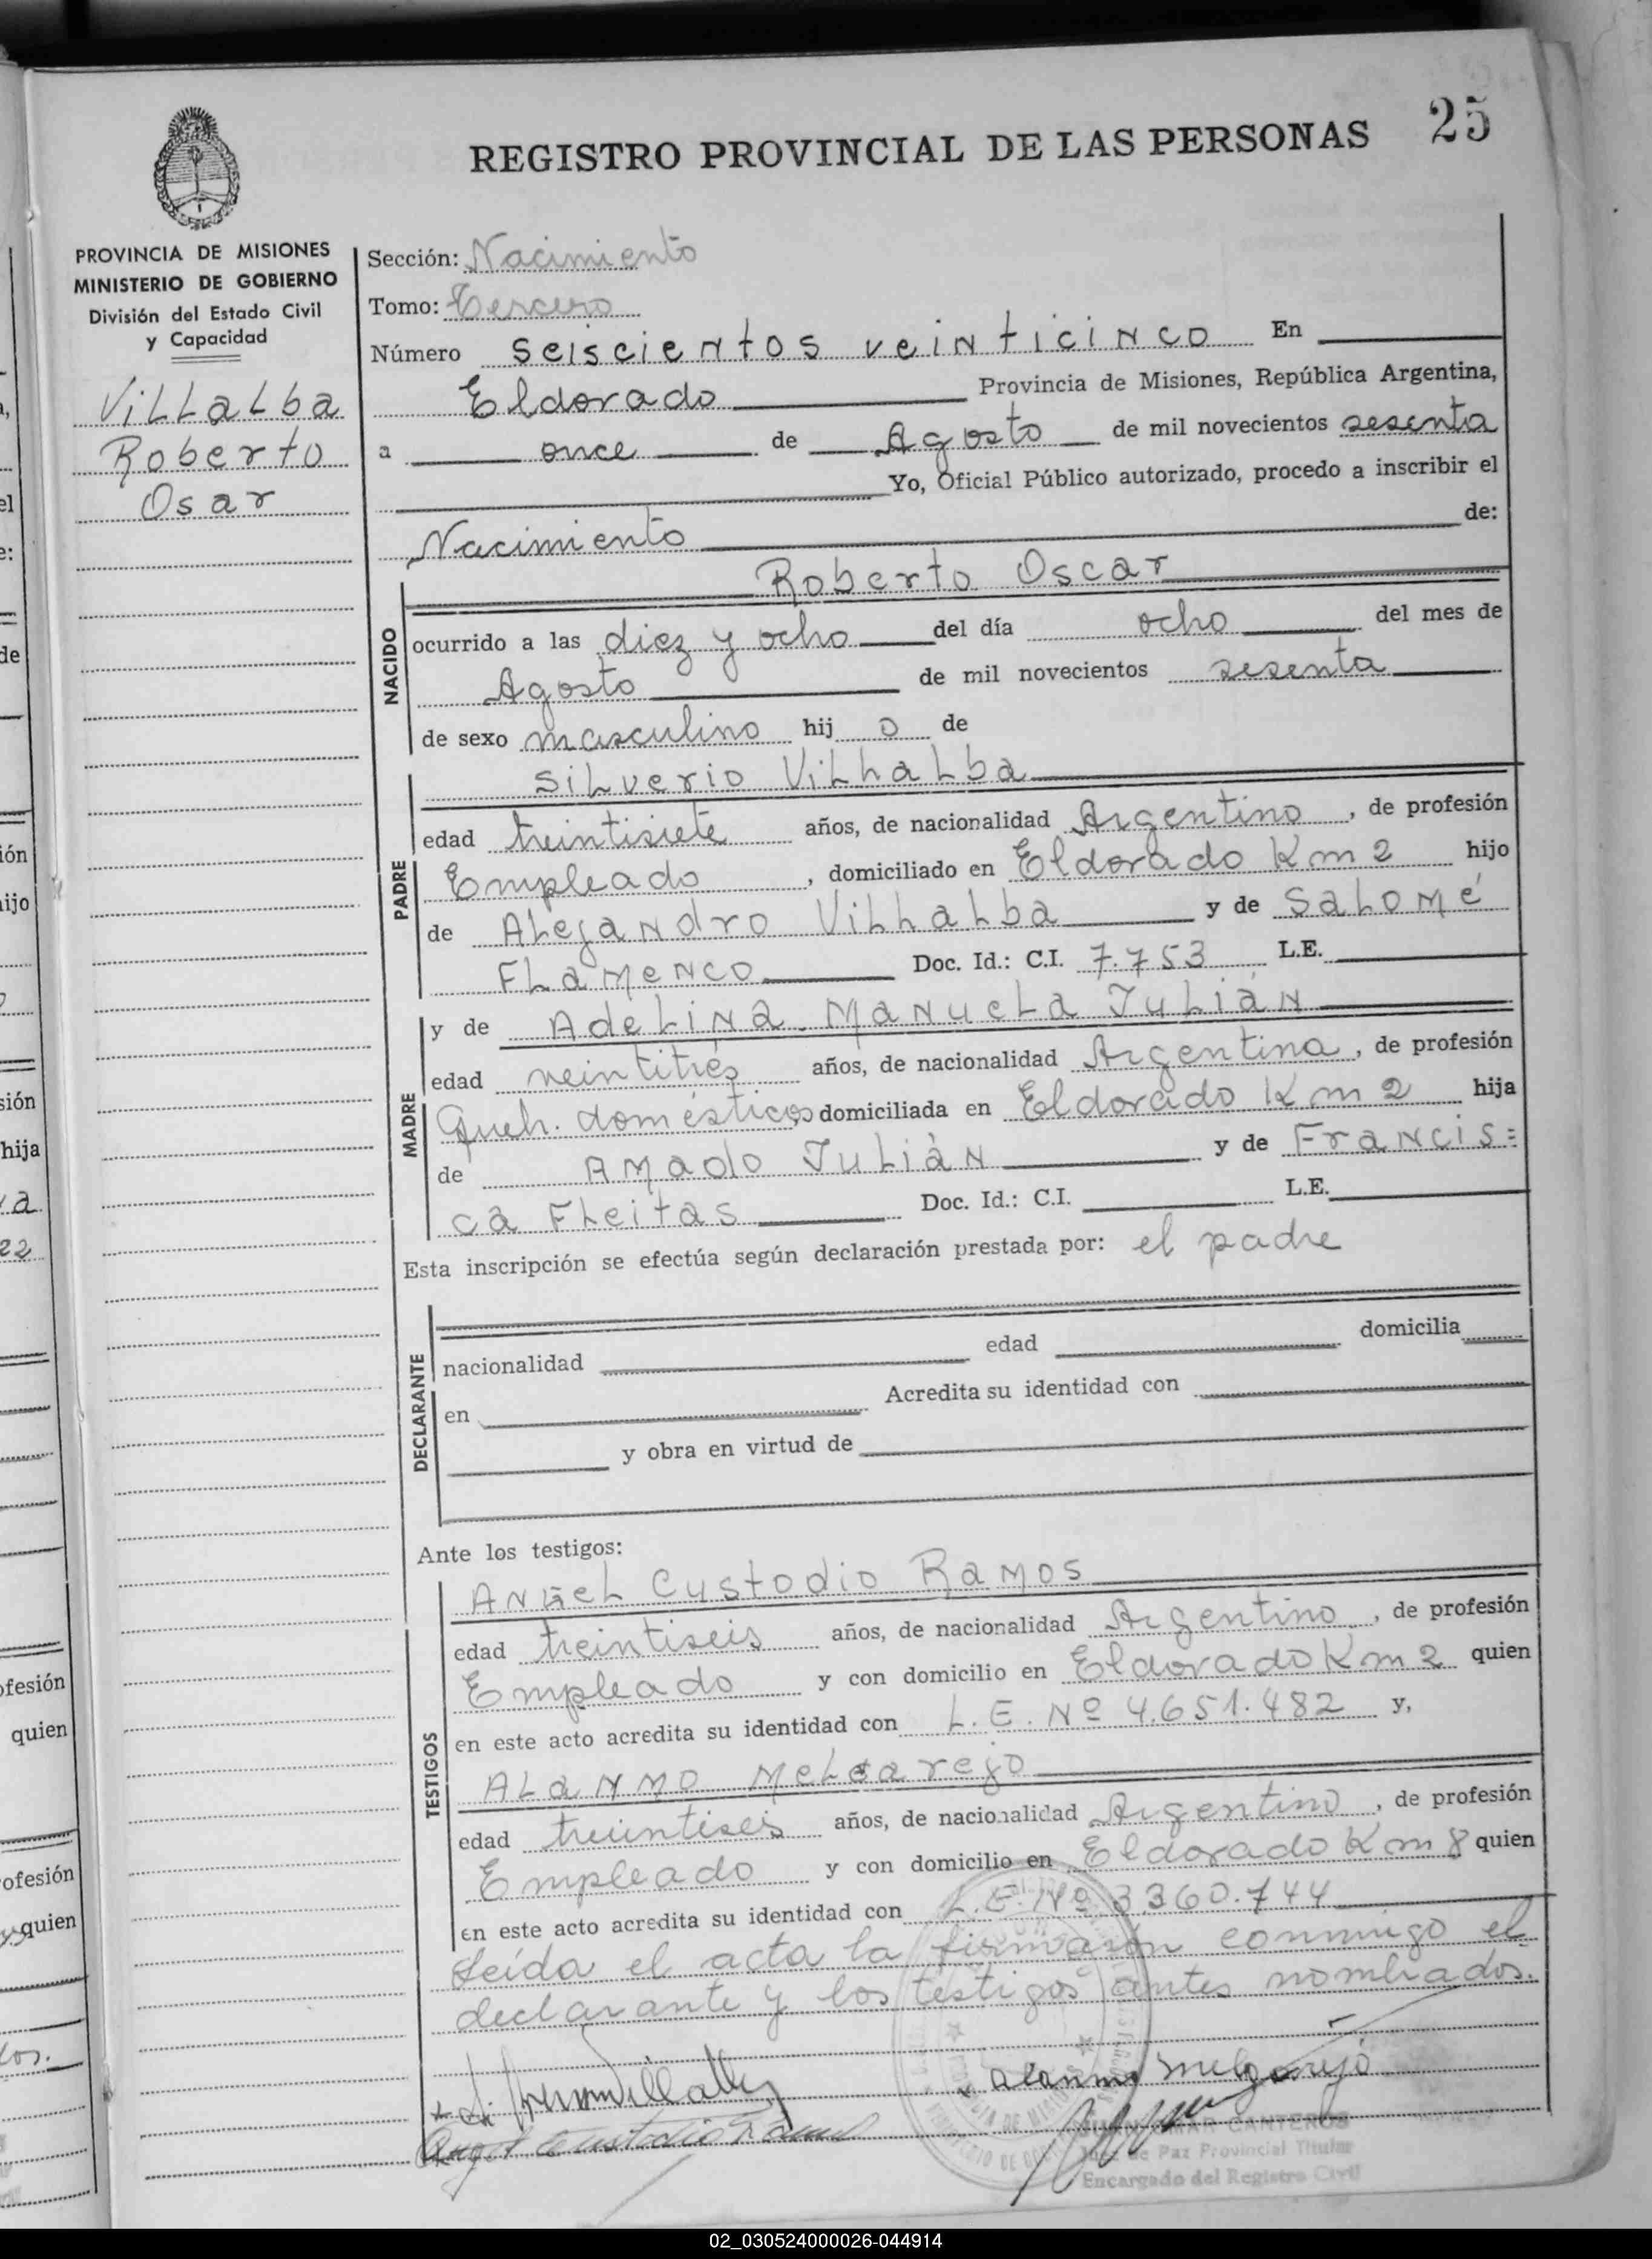 25
REGISTRO PROVINCIAL DE LAS PERSONAS
PROVINCIA DE MISIONES
MINISTERIO DE GOBIERNO
División del Estado Civil
y Capacidad
Villalba
Roberto
Osar
Sección: Nacimiento
Tomo: Tercero
Número seiscientos veinticinco En
Eldorado Provincia de Misiones, República Argentina,
a once de Agosto de mil novecientos sesenta
Yo, Oficial Público autorizado, procedo a inscribir el
Nacimiento de:
Roberto Oscar
NACIDO
ocurrido a las diez y ocho del día ocho del mes de
Agosto de mil novecientos sesenta
de sexo masculino hij o de
PADRE
Silverio Villalba
edad treintisiete años, de nacionalidad Argentino, de profesión
Empleado, domiciliado en Eldorado Km 2 hijo
de Alejandro Villalba y de Salomé
Flamenco Doc. Id.: C.I. 7.753 L.E.
MADRE
y de Adelina Manuela Julián
edad veintitrés años, de nacionalidad Argentina, de profesión
Queh. domésticos domiciliada en Eldorado Km 2 hija
de Amado Julián y de Francis=
ca Fleitas Doc. Id.: C.I. L.E.
Esta inscripción se efectúa según declaración prestada por: el padre
DECLARANTE
nacionalidad edad domicilia
en Acredita su identidad con
y obra en virtud de
Ante los testigos:
TESTIGOS
Angel Custodio Ramos
edad treintiseis años, de nacionalidad Argentino, de profesión
Empleado y con domicilio en Eldorado Km 2 quien
en este acto acredita su identidad con L.E. Nº 4.651.482 y,
Alanmo Melgarejo
edad treintiseis años, de nacionalidad Argentino, de profesión
Empleado y con domicilio en Eldorado Km 8 quien
en este acto acredita su identidad con L.E. Nº 3.360.744
Leída el acta la firmaron conmigo el
declarante y los testigos antes nombrados.
Alanmo Melgarejo
Angel Custodio Ramos
OMAR CANTEROS
Juez de Paz Provincial Titular
Encargado del Registro Civil
02_030524000026-044914